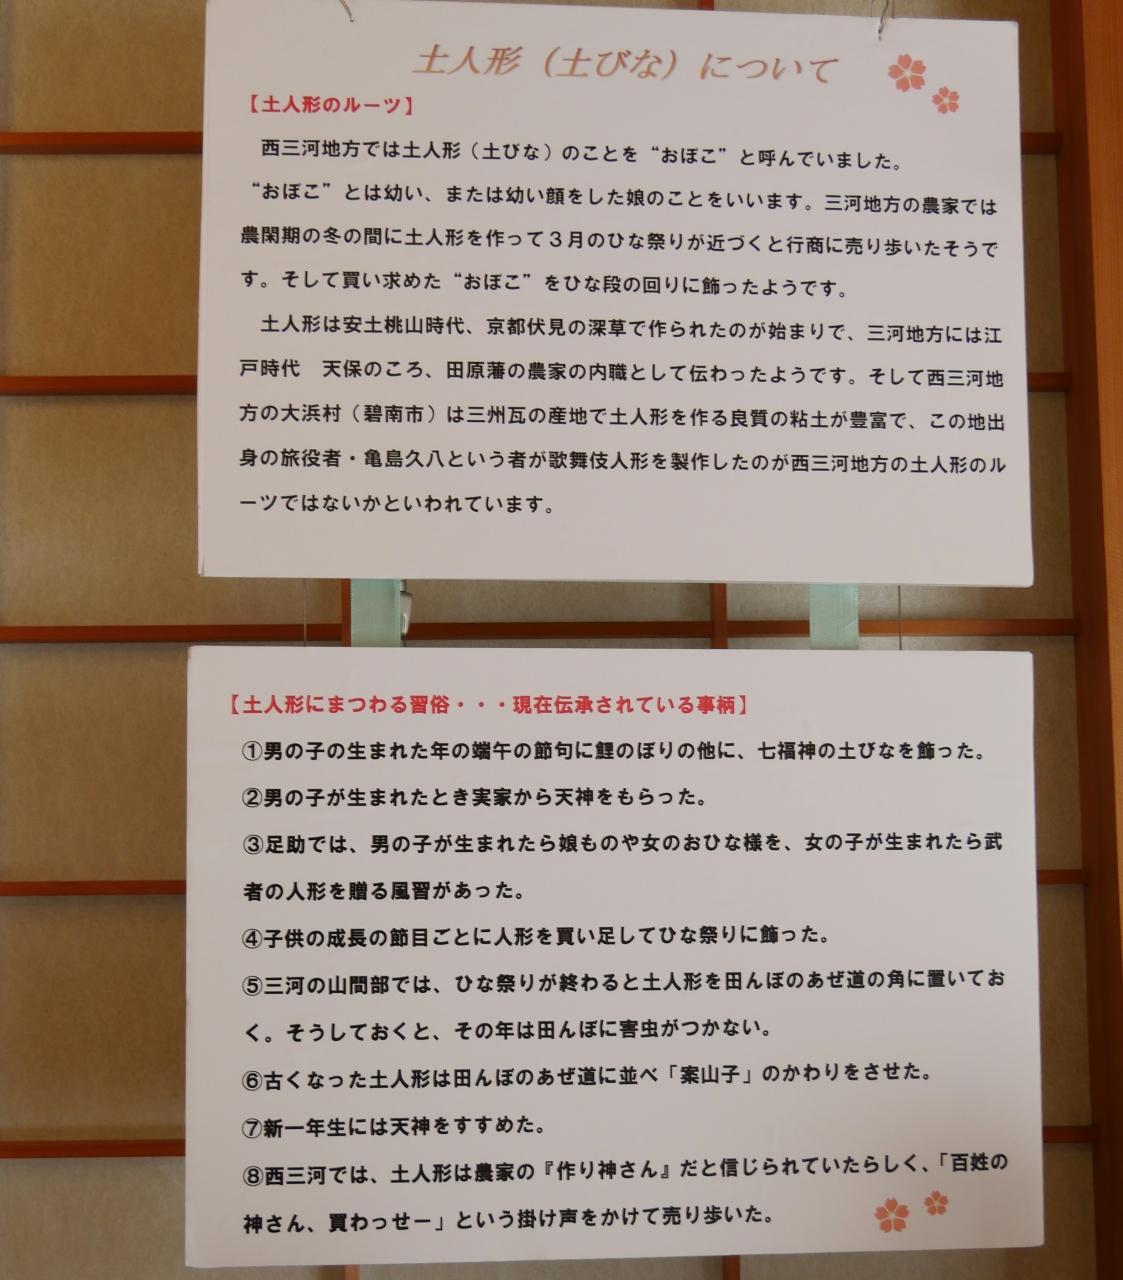 土人形（土びな）について
【土人形のルーツ】
　西三河地方では土人形（土びな）のことを“おぼこ”と呼んでいました。
“おぼこ”とは幼い、または幼い顔をした娘のことをいいます。三河地方の農家では
農閑期の冬の間に土人形を作って３月のひな祭りが近づくと行商に売り歩いたそうで
す。そして買い求めた“おぼこ”をひな段の回りに飾ったようです。
　土人形は安土桃山時代、京都伏見の深草で作られたのが始まりで、三河地方には江
戸時代　天保のころ、田原藩の農家の内職として伝わったようです。そして西三河地
方の大浜村（碧南市）は三州瓦の産地で土人形を作る良質の粘土が豊富で、この地出
身の旅役者・亀島久八という者が歌舞伎人形を製作したのが西三河地方の土人形のル
ーツではないかといわれています。
【土人形にまつわる習俗・・・現在伝承されている事柄】
①男の子の生まれた年の端午の節句に鯉のぼりの他に、七福神の土びなを飾った。
②男の子が生まれたとき実家から天神をもらった。
③足助では、男の子が生まれたら娘ものや女のおひな様を、女の子が生まれたら武
者の人形を贈る風習があった。
④子供の成長の節目ごとに人形を買い足してひな祭りに飾った。
⑤三河の山間部では、ひな祭りが終わると土人形を田んぼのあぜ道の角に置いてお
く。そうしておくと、その年は田んぼに害虫がつかない。
⑥古くなった土人形は田んぼのあぜ道に並べ「案山子」のかわりをさせた。
⑦新一年生には天神をすすめた。
⑧西三河では、土人形は農家の『作り神さん』だと信じられていたらしく、「百姓の
神さん、買わっせー」という掛け声をかけて売り歩いた。